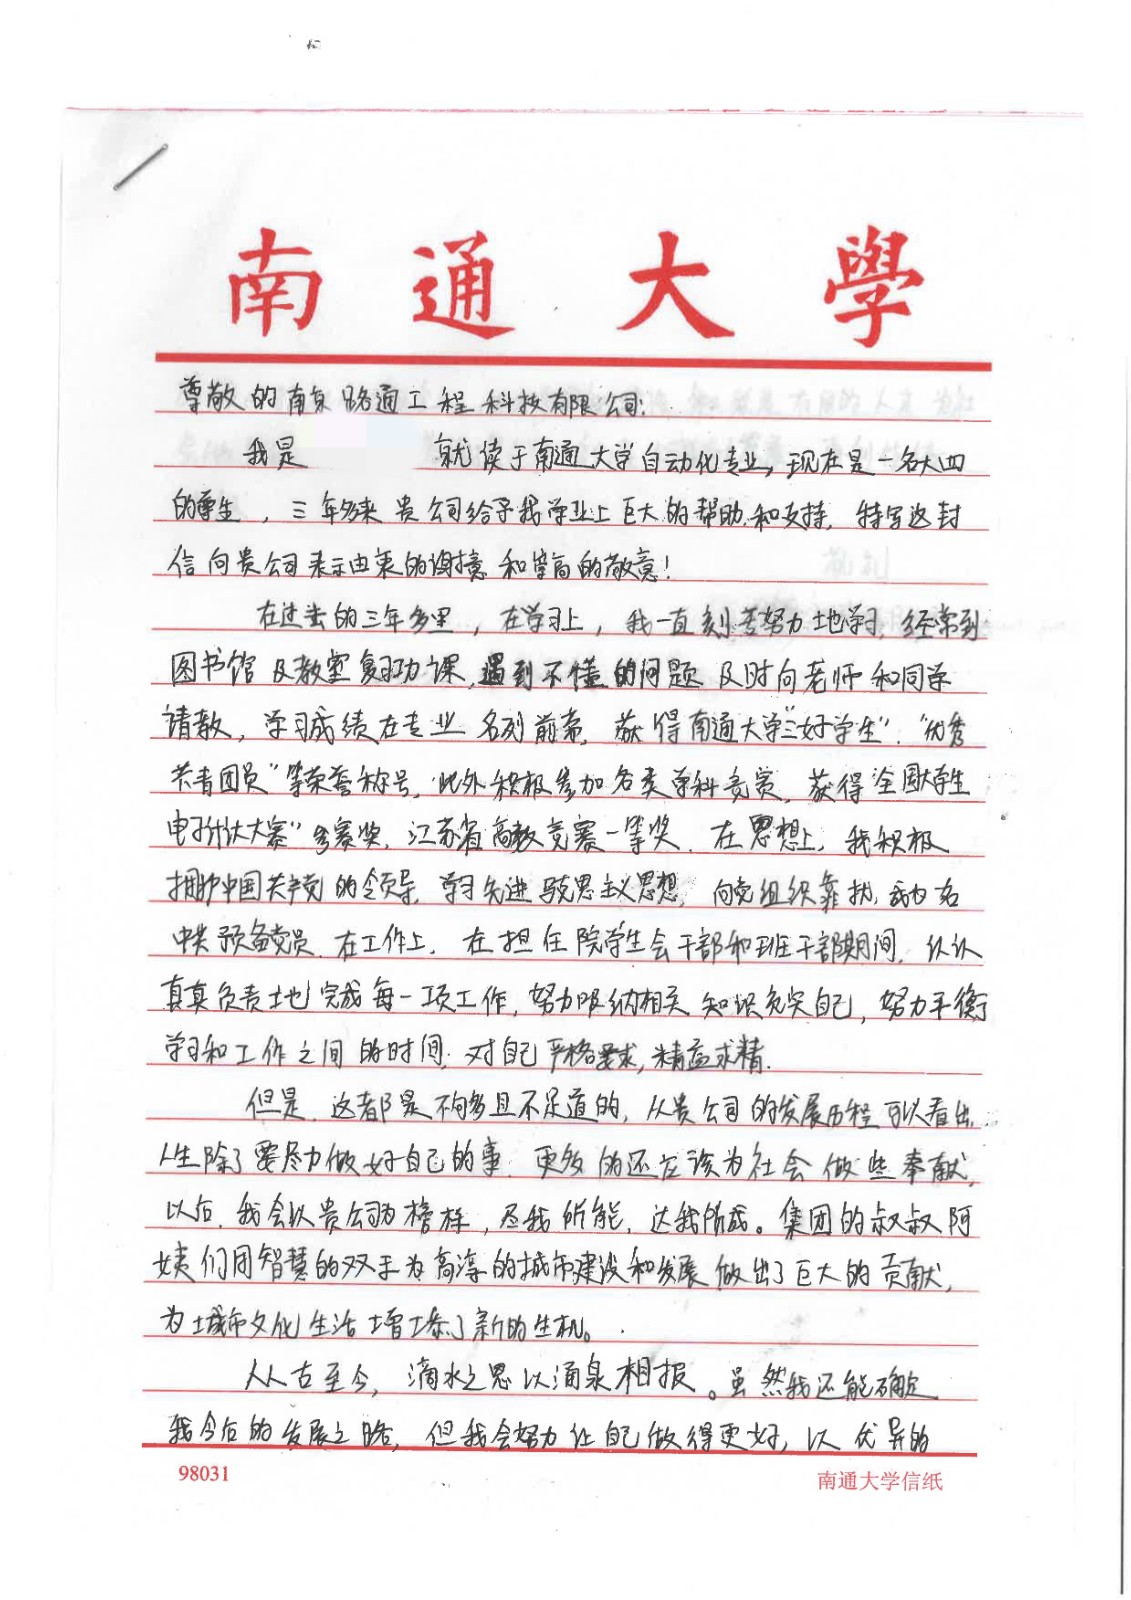 南通大學
尊敬的南京路通工程科技有限公司:
我是 就读于南通大学自动化专业,现在是一名大四
的学生,三年多来贵公司给予我学业上巨大的帮助和支持,特写这封
信向贵公司表示由衷的谢意和崇高的敬意!
在过去的三年多里,在学习上,我一直刻苦努力地学习,经常到
图书馆及教室复习功课,遇到不懂的问题及时向老师和同学
请教,学习成绩在专业名列前茅,获得南通大学“三好学生”、“优秀
共青团员”等荣誉称号,此外积极参加各类学科竞赛,获得全国大学生
电子设计大赛”参赛奖,江苏省高数竞赛一等奖.在思想上,我积极
拥护中国共产党的领导,学习先进马克思主义思想,向党组织靠拢,成为一名
中共预备党员.在工作上,在担任院学生会干部和班干部期间,认认
真真负责地完成每一项工作,努力吸纳相关知识充实自己,努力平衡
学习和工作之间的时间.对自己严格要求,精益求精.
但是,这都是不够多且不足道的,从贵公司的发展历程可以看出,
人生除了要尽力做好自己的事,更多的还应该为社会做些奉献,
以后,我会以贵公司为榜样,尽我所能,达我所成。集团的叔叔阿
姨们用智慧的双手为高淳的城市建设和发展做出了巨大的贡献,
为城市文化生活增添了新的生机。
从古至今,滴水之恩以涌泉相报。虽然我还能确定
我今后的发展之路,但我会努力让自己做得更好,以优异的
98031
南通大学信纸